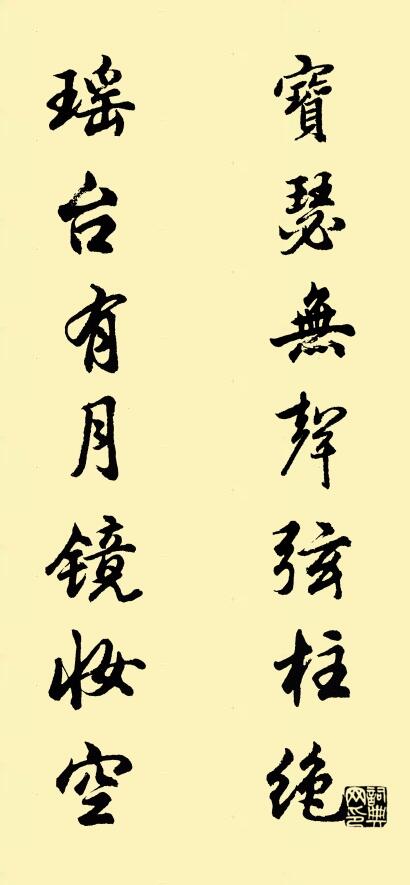 寶瑟無聲弦柱絕
瑶台有月镜妆空
詞典网印